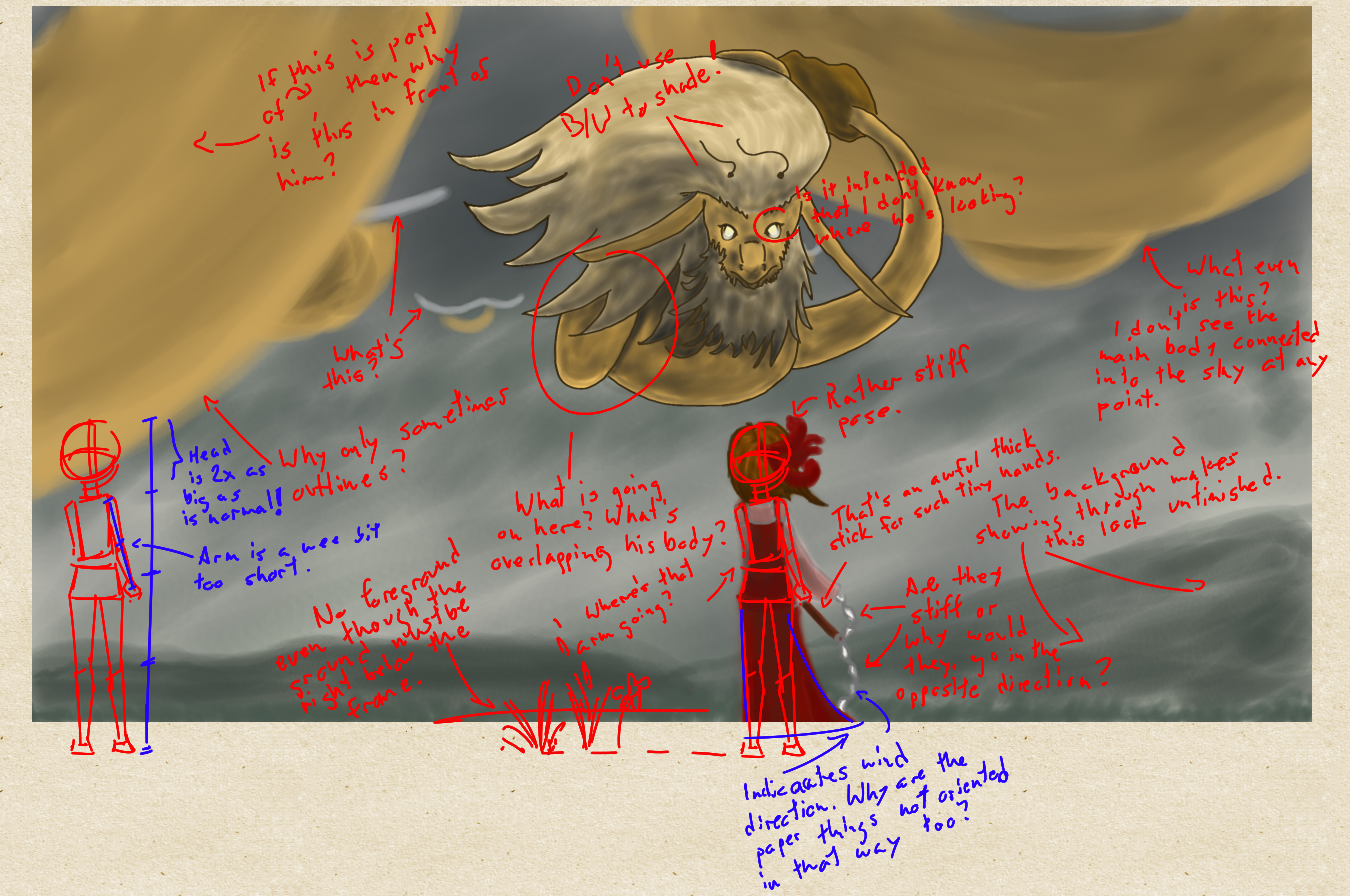 If this is part
of then why
is this in front of
him?
Don't use
B/W to shade!
Is it intended
that I don't know
where he's looking?
What even
is this?
I don't see the
main body connected
into the sky at any
point.
What's
this?
Why only sometimes
outlines?
Head
is 2x as
big as
is normal!
Arm is a wee bit
too short.
What is going
on here? What's
overlapping his body?
Rather stiff
pose.
That's an awful thick
stick for such tiny hands.
The background
showing through makes
this look unfinished.
No foreground
even though the
ground must be
right below the
frame.
Where's that
arm going?
Are they
stiff or
why would
they go in the
opposite direction?
Indicaates wind
direction. Why are the
paper things not oriented
in that way too?